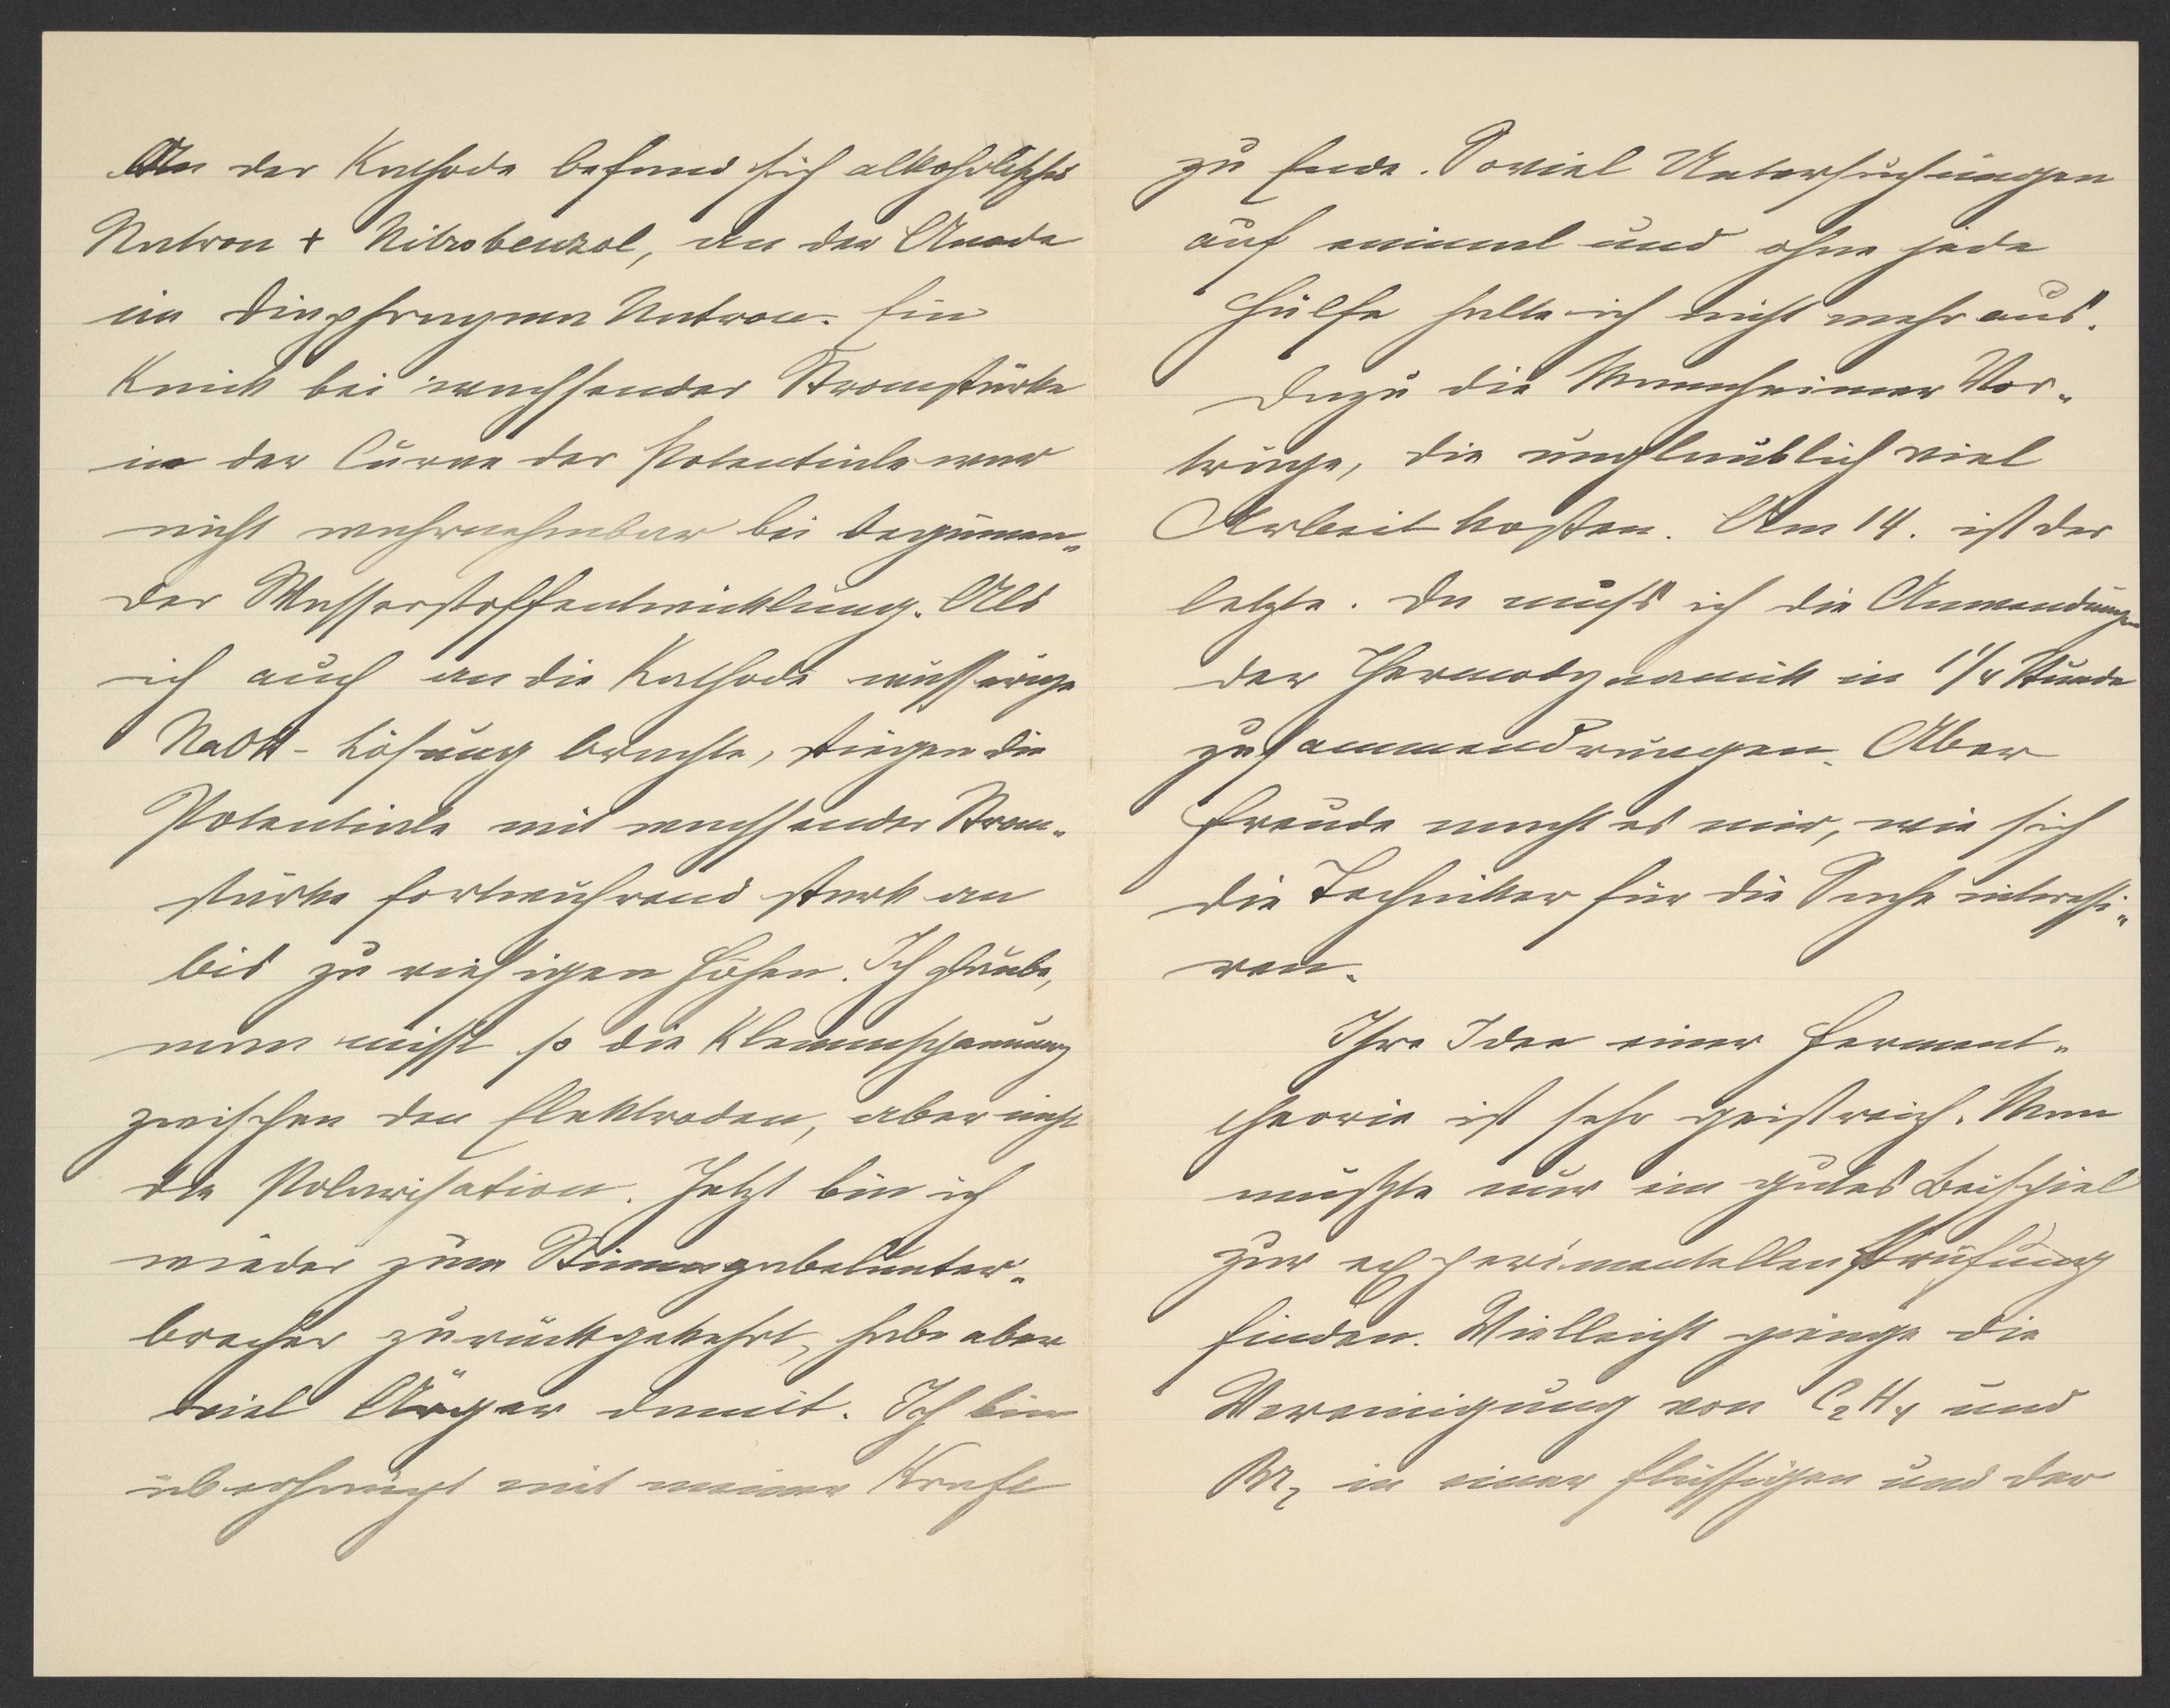 An der Kathode befand sich alkoholisches
Natron + Nitrobenzol, an der Anode
im Diaphragma Natron. Ein
Knick bei wachsender Stromstärke
in der Curve der Potentiale war
nicht wahrnehmbar bei beginnen-
der Wasserstoffentwicklung. Als
ich auch an die Kathode wässrige
NaOH-Lösung brachte, stiegen die
Potentiale mit wachsender Strom-
stärke fortwährend stark an
bis zu riesigen Höhen. Ich glaube,
man misst so die Klemmspannung
zwischen den Elektroden, aber nicht
die Polarisation. Jetzt bin ich
wieder zum Stimmgabelunter-
brecher zurückgekehrt, habe aber
viel Ärger damit. Ich bin
überhaupt mit meiner Kraft
zu Ende. Soviel Untersuchungen
auf einmal und ohne jede
Hülfe halte ich nicht mehr aus.
Dazu die Mannheimer Vor-
träge, die unglaublich viel
Arbeit kosten. Am 14. ist der
letzte. Da muss ich die Anwendungen
der Thermodynamik in 1 1/4 Stunde
zusammendrängen. Aber
Freude macht es mir, wie sich
die Techniker für die Sache interessi-
ren.
Ihre Idee einer Ferment-
theorie ist sehr geistreich. Man
müsste nur ein gutes Beispiel
zur experimentellen Prüfung
finden. Vielleicht ginge die
Vereinigung von C2H4 und
Br2 in einer flüssigen und der